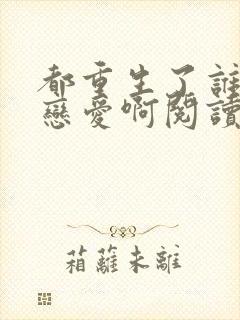 都重生了誰
戀愛啊閱讀
箱蘺未離